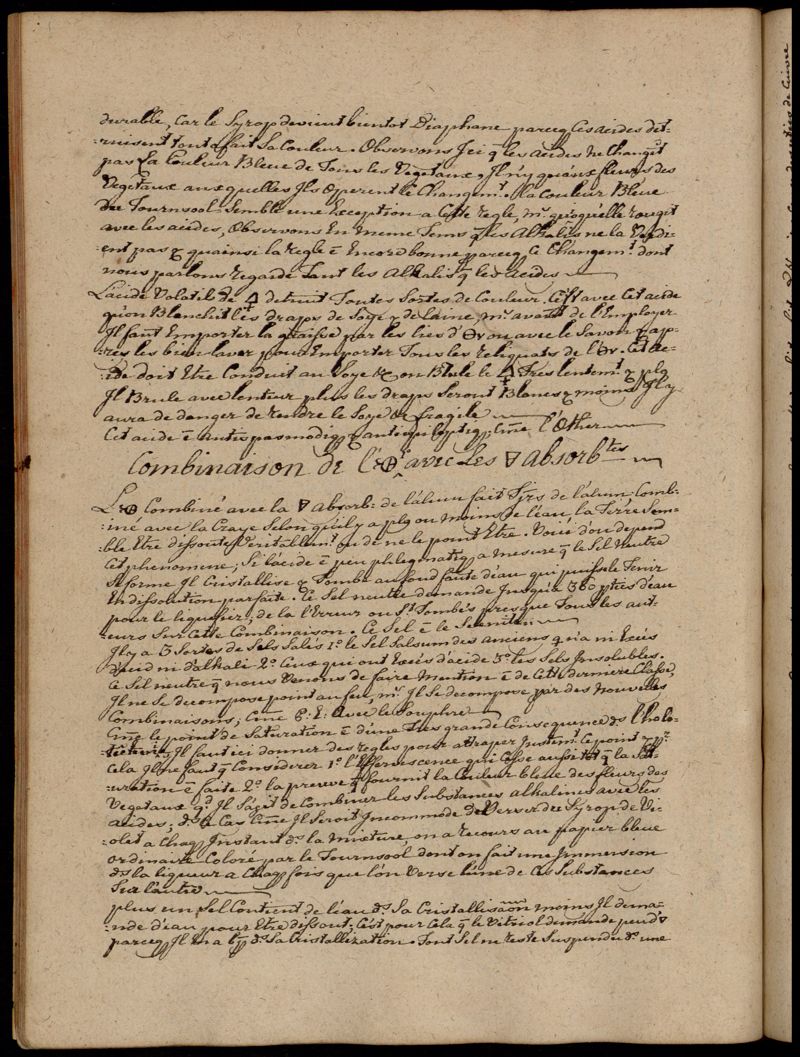 durable, car le Syrop devient bientot Diaphane parceq̃ Ces acides det-
-ruisent tout a fait Sa Couleur. Observons Jci q̃ les acides Ne Changt̃
pas La Couleur Bleue de Tous les Vegetaux, Jl n'y qu'aux fleurs des
Vegetaux auxquelles Jls operent le Changemt. la Couleur Bleue
du Tournesol Semble une Exception a Cette regle, mr. quoiquelle rougit
avec les acides, Observons En meme Tems q̃ les Alkalis ne la Verdi-
ent pas & quainsi la regle ẽ Encore bonne parceq̃ Ce Changemt. dont
nous parlons regarde Tant les Alkalis q̃ les Acides
L'acide Volatil de 🜍 detruit Toutes Sortes de Couleur. C'est avec Cet acide
qu'on Blanchit les draps de Soye & de laine, mr. avant de l'Employer
Jl faut Emporter la graisse par les lies d' ou avec le Savon & ap-
-res les bien laver pour Emporter Tous les reliquats de l' . Cet ac-
-ide doit Etre Conduit au Soye & on Brule le 🜍 Tres lentemt. & plq
Jl Brule avec lenteur plus les draps Seront Blancs & moins Jl y
aura de danger de rendre le Soye fragile
Cet acide ẽ antispasmodiq & antiepileptiq Cm̃e l'Æther
Combinaison de l' avec Les 🜃 absorbtes
L' Combiné avec la 🜃 absorb: de l'alun fait Tjrs de l'alun, Comb-
-iné avec la Craye Selon qu'il y a plq ou moins de l'eau, la Terre Sem-
-ble Etre dissoute Veritablemt. ou de ne le point Etre. Voici d'ou depend
Cet phenomene, Si l'acide ẽ peu phlegmatiq, a mesure q̃ le Sel Neutre
Se forme Jl Cristallise & Tombe au fond faute d'eau qui puisse le Tenir
En dissolution parfaite. Ce Sel neutre demande Jusqu'a 360 pties d'eau
pour le liquefier, de la l'Erreur ou St. Tombés presque Tous les aut-
-eurs Sur Cette Combinaison. Ce Sel ẽ le Selenites
Jl y a 3 Sortes de Sels Salés 1o. le Sel Salsum des anciens q n'a ni Excés
d'acid ni d'alkali 2o. Ceux qui ont Excés d'acide 3o. les Sels Jnsolubles.
Ce Sel neutre q̃ nous Venons de faire Mention ẽ de Cette derniere Classe,
Jl ne Se decompose point au feu, mr. Jl Se decompose par des Nouvelles
Combinaisons, Cm̃e P. E: avec le Souphre
Cm̃e le point de Saturation ẽ d'une Tres grande Consequence ds
Jl faut ici donner des regles pour attraper Justemt. Ce point & pr.
Cela Jl ne faut q̃ Considerer 1o. l'Effervescence qui Cesse aussitot q̃ la Sat-
-uration ẽ faite 2o. la preuve q̃ fournit la Couleur bleue des fleurs des
Vegetaux qd. Jl S'agit de Combiner les Substances alkalines avec les
acides, ds. Ce Cas Cm̃e Jl Seroit Jncommode de Verser du Syrop de Vi-
olet a Chaq Jnstant ds. la mixture, on a recours au papier bleue
ordinaire Coloré par le Tournesool dont on fait une Jmmersion
ds. la liqueur a Chaq fois que l'on Verse l'une de Ces Substances
Sur l'autre
plus un Sel Contient de l'eau ds. Sa Cristallisaõn moins Jl dema-
-nde d'eau pour Etre dissout, C'est pour Cela q̃ le Vitriol demande peu d'
parceq Jl En a bq ds. Sa Cristallization. Tout Sel ne reste Suspendu ds. une